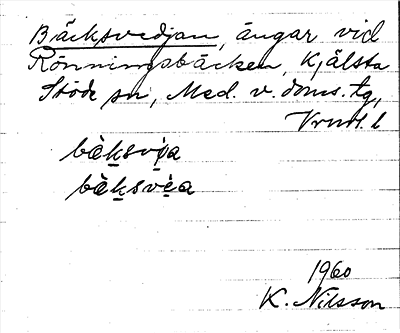 Bäcksvedjan, ängar vid
Rönningsbäcken, Kjälsta
Stöde sn, Med. v. doms. tg,
bàk̲svi̭a
bàk̲svè̲a
1960
K. Nilsson